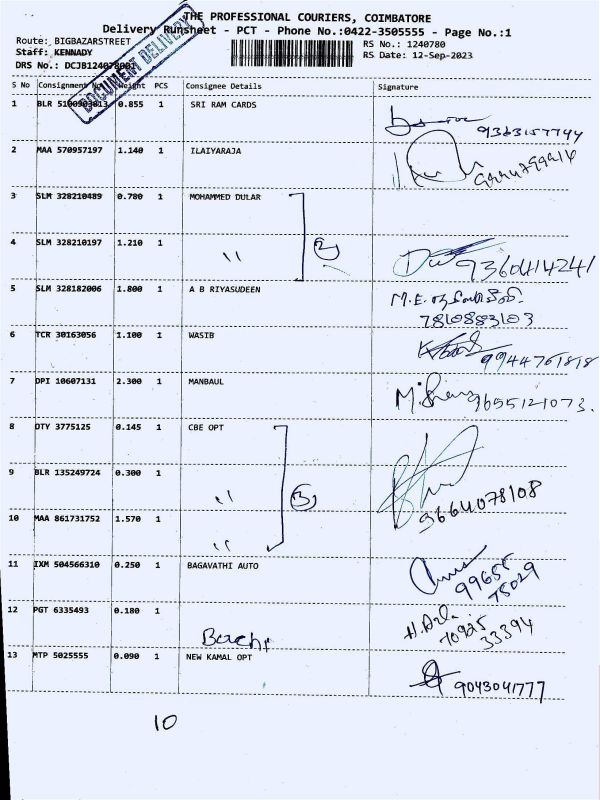 THE PROFESSIONAL COURIERS, COIMBATORE
Delivery Runsheet - PCT - Phone No.:0422-3505555 - Page No.:1
Route: BIGBAZARSTREET
RS No.: 1240780
Staff: KENNADY
RS Date: 12-Sep-2023
DRS No.: DCJB1240780001
DOCUMENT DELIVERY
S No Consignment No Weight PCS Consignee Details Signature
1 BLR 5100903813 0.855 1 SRI RAM CARDS
9363157744
2 MAA 570957197 1.140 1 ILAIYARAJA
3 SLM 328210489 0.780 1 MOHAMMED DULAR
2
4 SLM 328210197 1.210 1 "
9360414241
5 SLM 328182006 1.800 1 A B RIYASUDEEN
M.E.
7810883103
6 TCR 30163056 1.100 1 WASIB
9944761818
7 DPI 10607131 2.300 1 MANBAUL
9655121073.
8 OTY 3775125 0.145 1 CBE OPT
9 BLR 135249724 0.300 1 "
3
9664078108
10 MAA 861731752 1.570 1 "
11 IXM 504566310 0.250 1 BAGAVATHI AUTO
99655
75029
12 PGT 6335493 0.180 1
70925
33394
13 MTP 5025555 0.090 1 NEW KAMAL OPT
9043041777
10